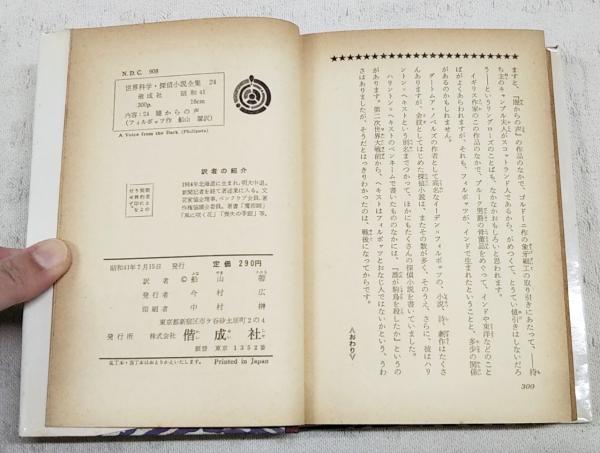 ますと、『闇からの声』の作品のなかで、ゴルドーニ作の象牙細工の取り引きにあたって、――持
ち主のキャンブル夫人がスコットランド人であるから、がめつくて、とうてい値引きはしないだろ
う――というリングローズのことばも、なかなかおもしろいと思われます。
イギリス作家のこの作品のなかで、ブルーク男爵の骨董品をめぐって、インドや東洋などのこと
ばがよくあらわれますが、それも、フィルポッツが、インドで生まれたということと、多少の関係
があるのかもしれません。
ダートムア・ノベルズの作者として高名なイーデン＝フィルポッツの、小説、詩、劇作はたくさ
んありますが、会社員としてはじめた探偵小説は、またその数が多く、そのうえ、さらに、彼はハリ
ントン＝ヘキストという別名までつかって、ほかにもたくさんの探偵小説を書いていました。
ハリントン＝ヘキストのペンネームで書いたもののなかには、『誰が駒鳥を殺したか』というの
があります。第二次世界大戦前から、ヘキストはフィルポッツとおなじ人ではないかという、うわ
さはありましたが、そうだとはっきりわかったのは、戦後になってからです。
〈おわり〉
309
N.D.C. 908
世界科学・探偵小説全集 24
偕成社 昭和41
300p. 18cm
内容:24 闇からの声
(フィルポッツ作 船山 馨訳)
A Voice from the Dark (Philpotts)
訳者の紹介
1914年北海道に生まれ, 明大中退。
新聞記者を経て著述業に入る。文
芸家協会理事, ペンクラブ会員, 著
作権協議会委員。著書「魔術師」
「風に咲く花」「喪失の季節」等。
昭和41年7月15日 発行
定価 290円
訳者 © 船山馨
発行者 今村広
印刷者 中村榊
東京都新宿区市ケ谷砂土原町2の4
発行所 株式会社 偕成社
振替 東京 1352番
乱丁本・落丁本はおとりかえいたします。
Printed in Japan